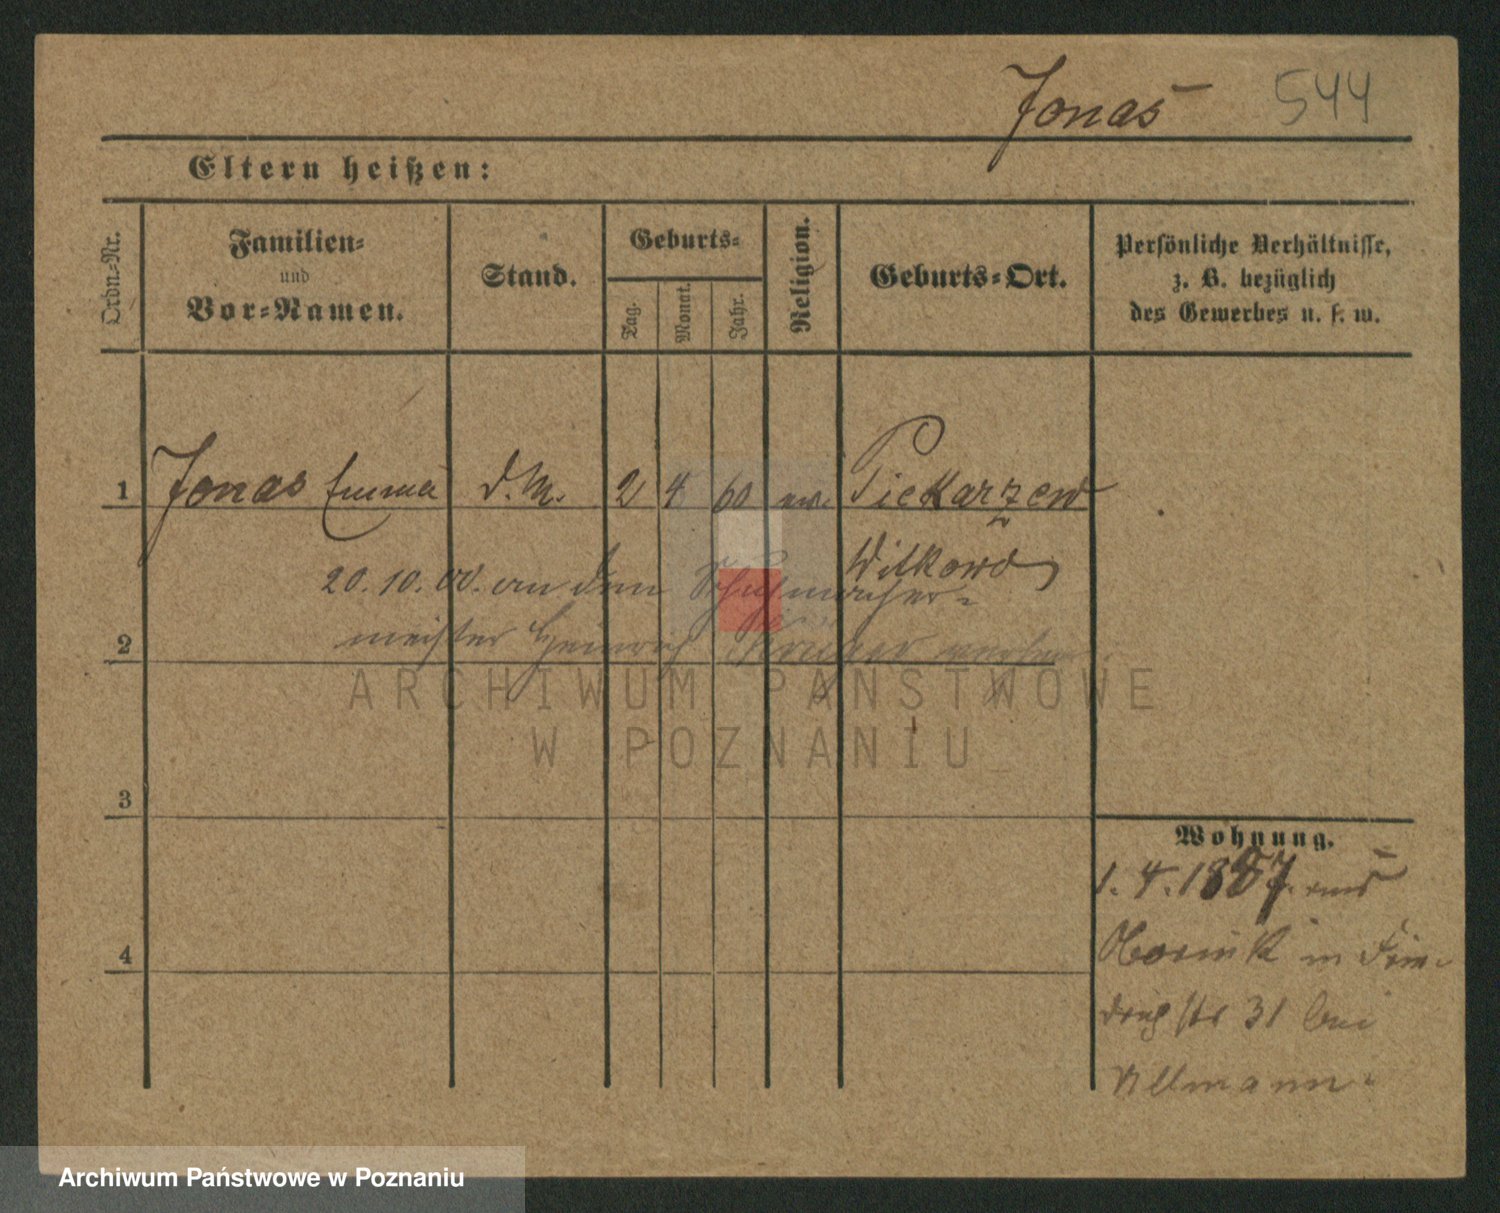 Jonas 544
Eltern heißen:
Ordn.=Nr.
Familien=
und
Vor=Namen.
Stand.
Geburts=
Tag.
Monat.
Jahr.
Religion.
Geburts=Ort.
Persönliche Verhältnisse,
z. B. bezüglich
des Gewerbes u. s. w.
1 Jonas Emma d. M. 2 4 60 ev. Piekarzew
Wilkowo
20.10.00. an den Schuhmacher=
2 meister Heinrich
ARCHIWUM PAŃSTWOWE
W POZNANIU
3
Wohnung.
1. 4. 1887. aus
4
in Frie=
drichstr 31 bei
Ullmann.
Archiwum Państwowe w Poznaniu